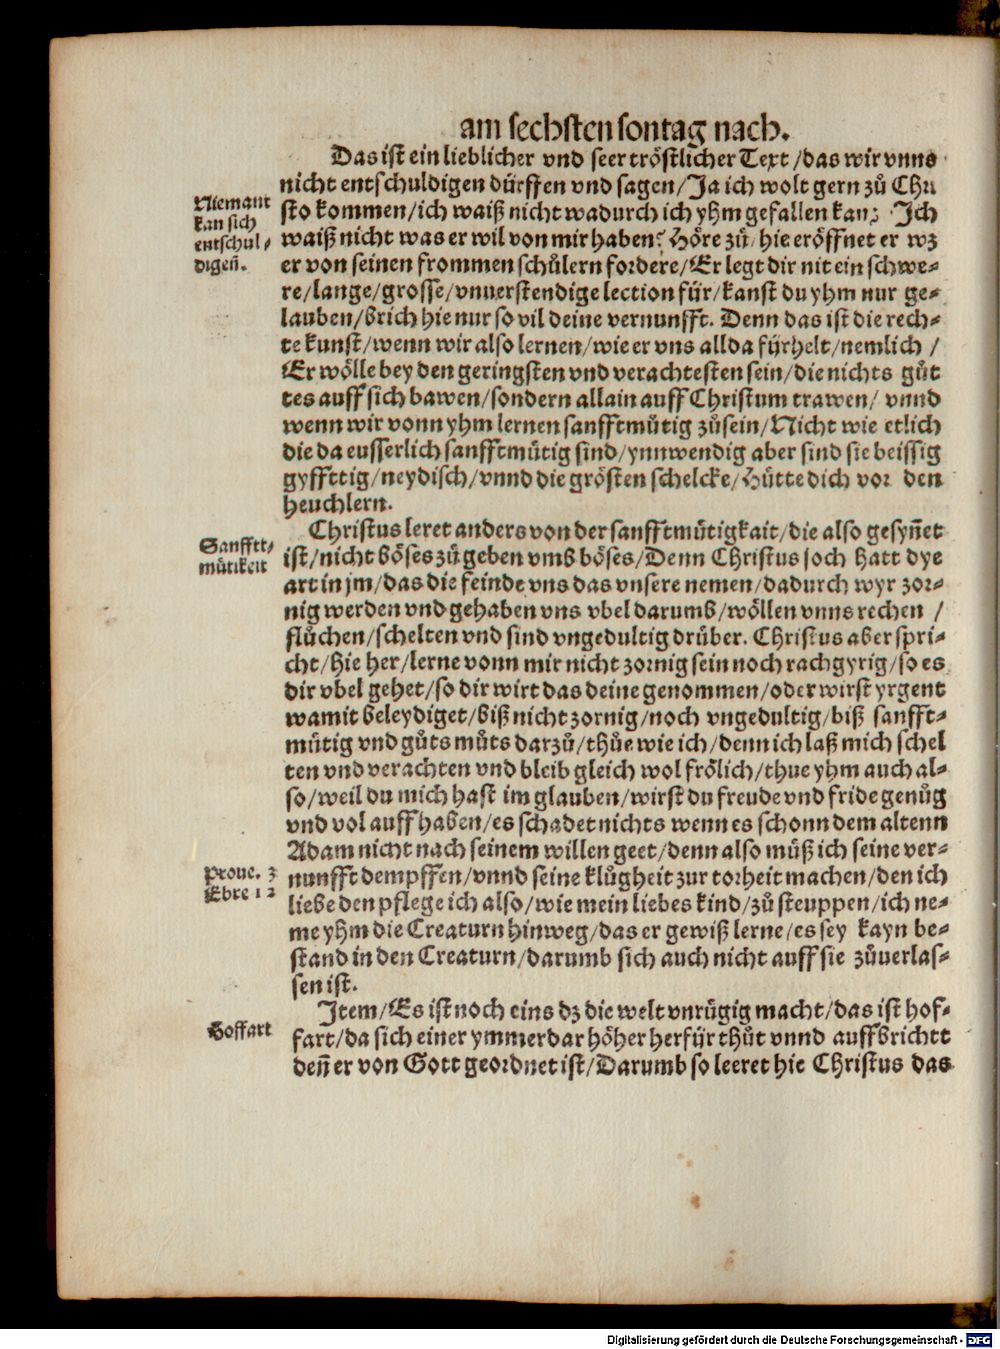 am sechsten sontag nach.
Das ist ein lieblicher vnd seer tröstlicher Text/das wir vnns
nicht entschuldigen dürffen vnd sagen/Ja ich wolt gern zů Chri
Niemant
kan sich
entschul/
digeñ.
sto kommen/ich waiß nicht wadurch ich yhm gefallen kan? Ich
waiß nicht was er wil von mir haben? Höre zů/hie eröffnet er wz
er von seinen frommen schůlern fordere/Er legt dir nit ein schwe-
re/lange/grosse/vnuerstendige lection für/kanst du yhm nur ge-
lauben/brich hie nur so vil deine vernunfft. Denn das ist die rech-
te kunst/wenn wir also lernen/wie er vns allda fürhelt/nemlich /
Er wölle bey den geringsten vnd verachtesten sein/die nichts gůt
tes auff sich bawen/sondern allain auff Christum trawen/ vnnd
wenn wir vonn yhm lernen sanfftmůtig zůsein/Nicht wie etlich
die da eusserlich sanfftmůtig sind/ynnwendig aber sind sie beissig
gyffttig/neydisch/vnnd die grösten schelcke/Hütte dich vor den
heuchlern.
Christus leret anders von der sanfftmůtigkait/die also gesyñet
Sanfftt/
můtikeit
ist/nicht böses zů geben vmb böses/Denn Christus joch hatt dye
art in jm/das die feinde vns das vnsere nemen/dadurch wyr zor-
nig werden vnd gehaben vns vbel darumb/wöllen vnns rechen /
flůchen/schelten vnd sind vngedultig drüber. Christus aber spri-
cht/hie her/lerne vonn mir nicht zornig sein noch rachgyrig/so es
dir vbel gehet/so dir wirt das deine genommen/oder wirst yrgent
wamit beleydiget/biß nicht zornig/noch vngedultig/biß sanfft-
můtig vnd gůts můts darzů/thůe wie ich/denn ich laß mich schel
ten vnd verachten vnd bleib gleich wol frölich/thue yhm auch al-
so/weil du mich hast im glauben/wirst du freude vnd fride genůg
vnd vol auff haben/es schadet nichts wenn es schonn dem altenn
Adam nicht nach seinem willen geet/denn also můß ich seine ver-
Proue. 3
Ebre 12
nunfft dempffen/vnnd seine klůgheit zur torheit machen/den ich
liebe den pflege ich also/wie mein liebes kind/zů steuppen/ich ne-
me yhm die Creaturn hinweg/das er gewiß lerne/es sey kayn be-
stand in den Creaturn/darumb sich auch nicht auff sie zůuerlas-
sen ist.
Item/Es ist noch eins dz die welt vnrůgig macht/das ist hof-
Hoffart
fart/da sich einer ymmerdar höher herfür thůt vnnd auffbrichtt
deñ er von Gott geordnet ist/Darumb so leeret hie Christus das
Digitalisierung gefördert durch die Deutsche Forschungsgemeinschaft - DFG